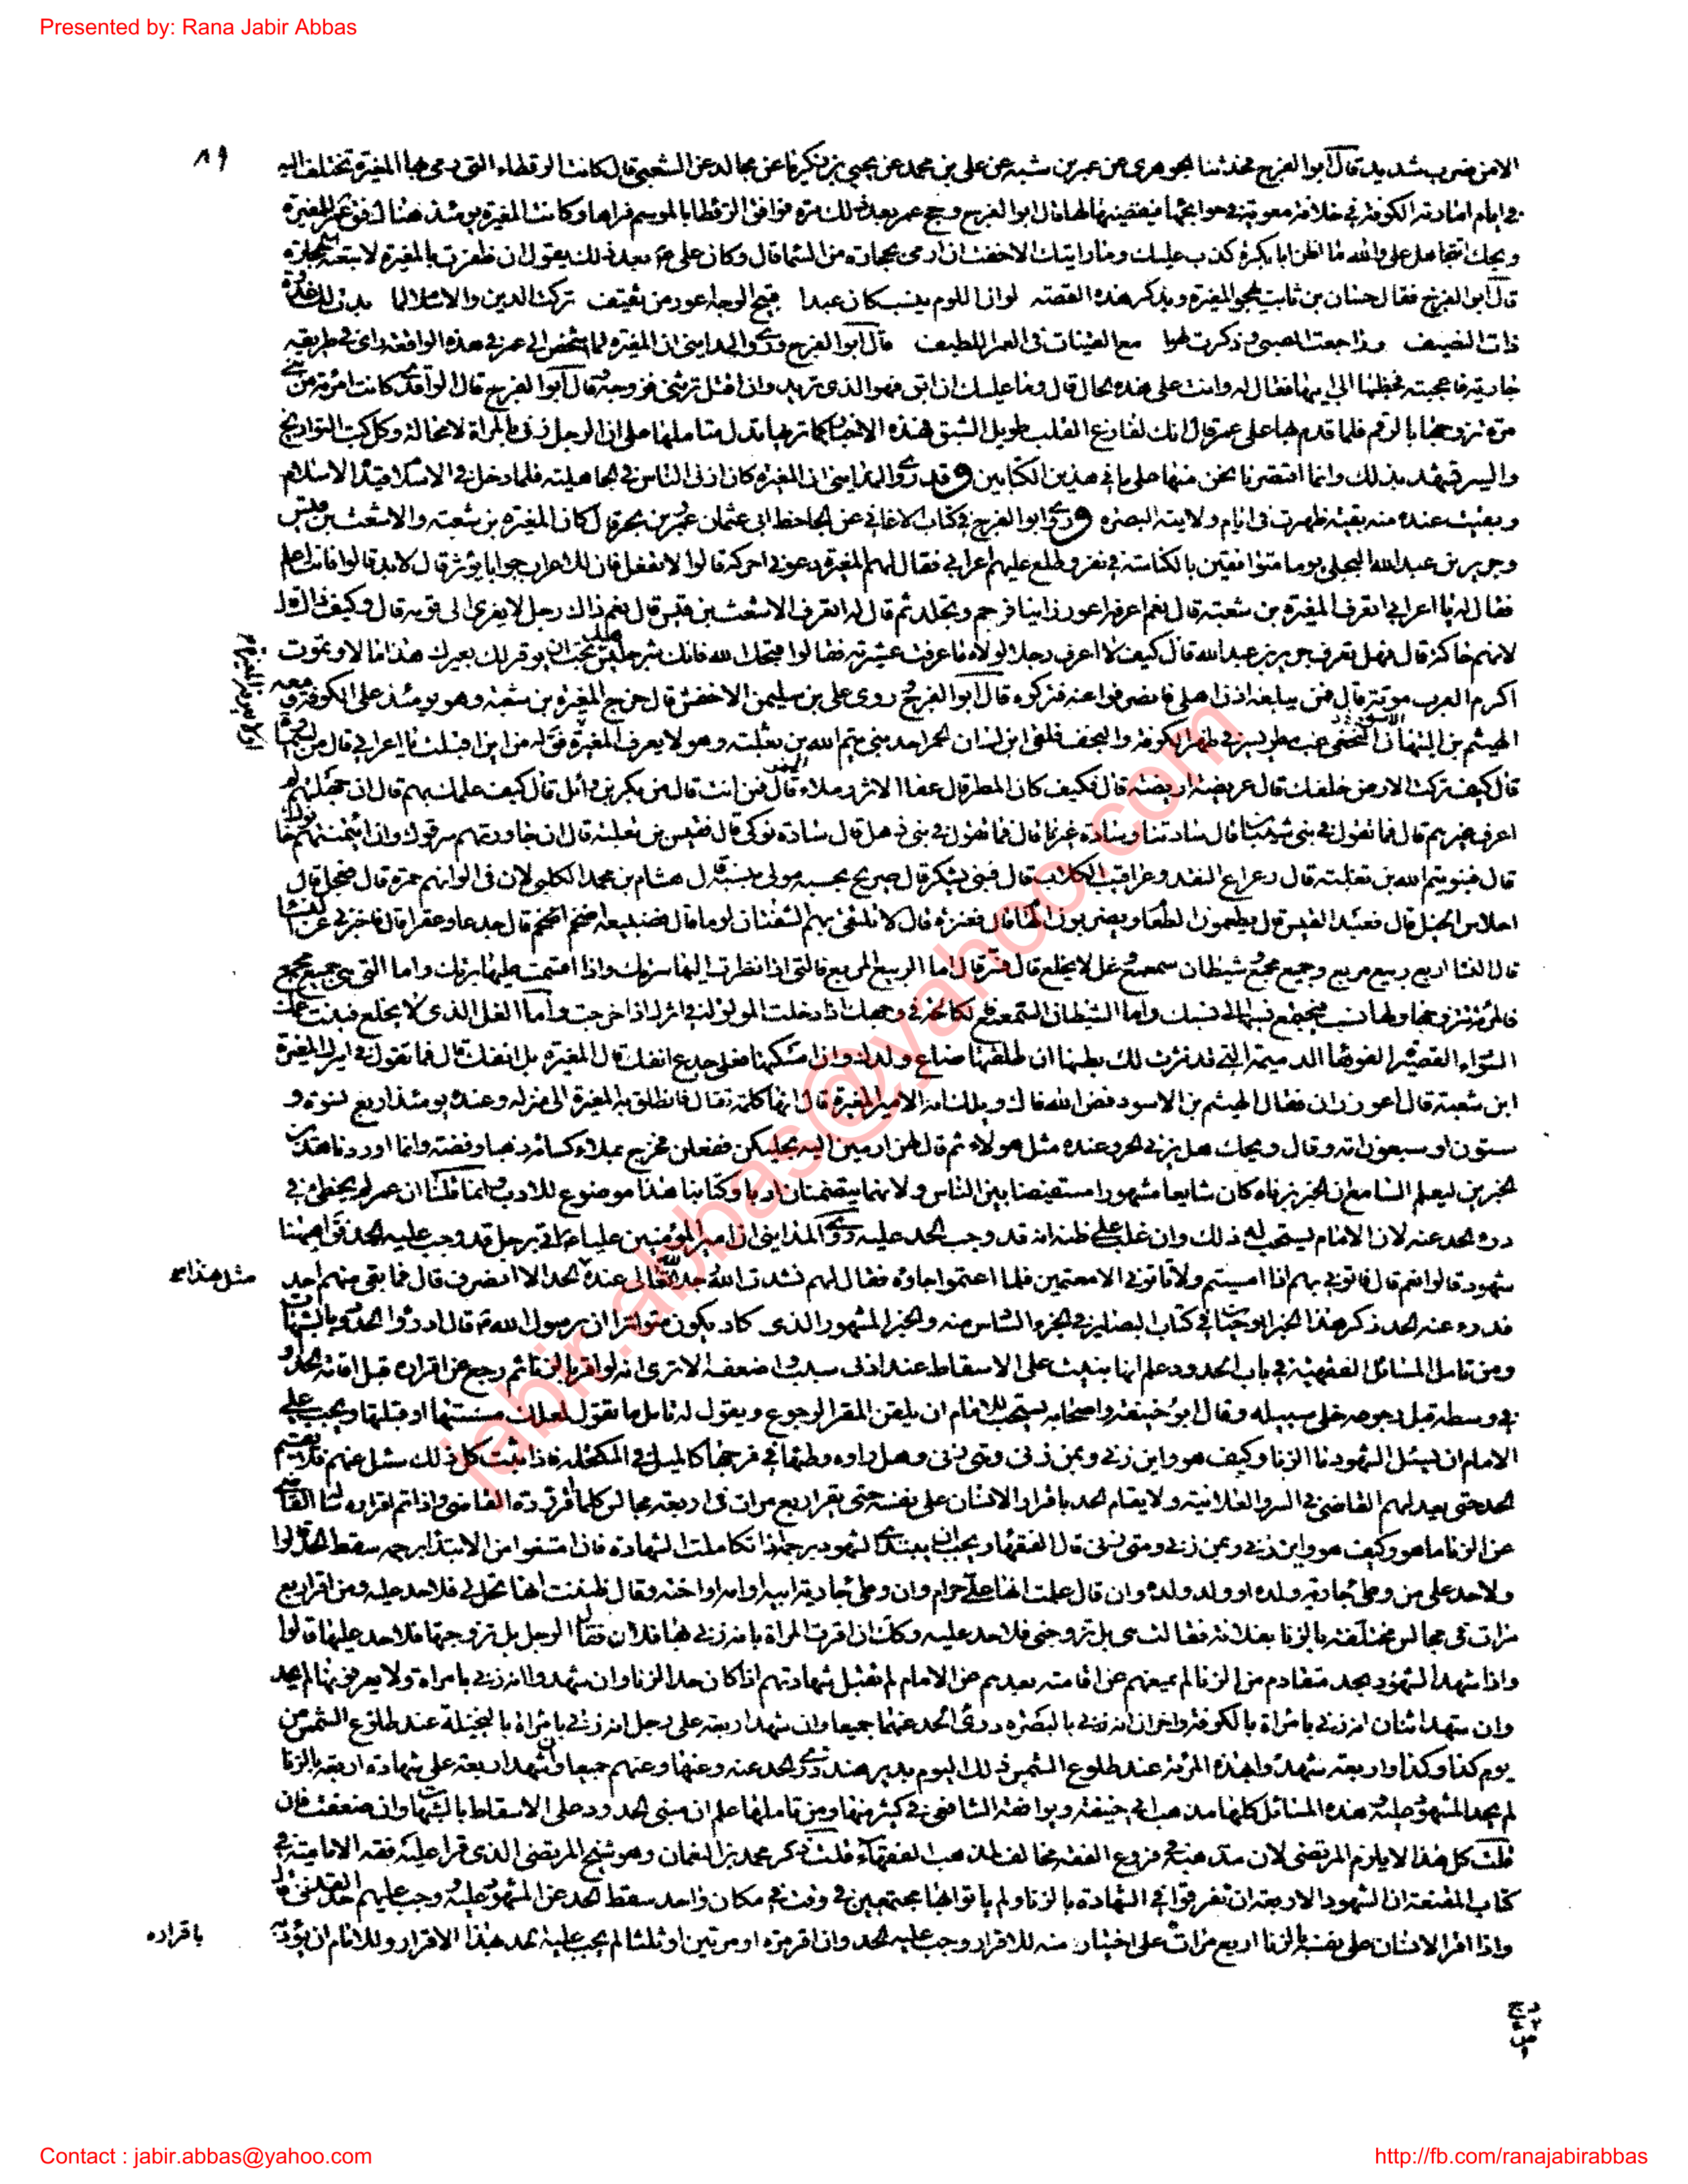 Presented by: Rana Jabir Abbas
٨٩
الا من ضرب شديد قال ابو الفرج فحدثنا الجوهرى عن عمر بن شبه عن على بن محمد عن يحيى بن زكريا عن مجالد عن الشعبى قال كانت الرقطاء التى رمى بها المغيرة تختلف اليه
فى ايام امارته الكوفة فى خلافة معوية فى حوائجها فيقضيها لها قال ابو الفرج وحج عمر بعد ذلك مرة فوافق الرقطا بالموسم فراها وكانت المغيرة يومئذ هناك فقال عمر للمغيرة
ويحك اتتجاهل على والله ما اظن ابا بكرة كذب عليك وما رايتك الا خفت ان ارمى بحجارة من السما قال وكان على ع بعد ذلك يقول ان ظفرت بالمغيرة لاتبعته الحجارة
قال ابو الفرج فقال حسان بن ثابت يهجو المغيرة ويذكر هذه القصة لو ان اللوم ينسب كان عبدا قبيح الوجه اعور من ثقيف تركت الدين والاسلام لما بدت لك غدوة
ذات النصيف وراجعت الصبى وذكرت لهوا مع القينات فى العمر اللطيف قال ابو الفرج وروى المداينى ان المغيرة لما شخص الى عمر فى هذه الواقعة راى فى طريقه
جارية فاعجبته فخطبها الى ابيها فقال له وانت على هذه الحال قال وما عليك ان ابق فهو الذى تريد وان اقتل ترثنى فزوجه قال ابو الفرج قال الواقدى كانت امرءة من بنى
مرة تزوجها بالرقم فلما قدم بها على عمر قال انك لفارغ القلب طويل الشبق فهذه الاخبار كما تراها تدل متاملها على ان الرجل زنى بالمراة لا محالة وكل كتب التواريخ
والسير تشهد بذلك وانما اقتصرنا نحن منها على ما فى هذين الكتابين وقد روى المداينى ان المغيرة كان ازنى الناس فى الجاهلية فلما دخل فى الاسلام قيده الاسلام
وبقيت عنده منه بقية ظهرت فى ايام ولايته البصرة وروى ابو الفرج فى كتاب الاغانى عن الجاحظ ابى عثمان عمرو بن بحر قال كان المغيرة بن شعبة والاشعث بن قيس
وجرير بن عبد الله البجلى يوما متواقفين بالكناسة فى نفر وطلع عليهم اعرابى فقال لهم المغيرة دعونى احركه قالوا لا تفعل فان للاعراب جوابا يؤثر قال لا بد قالوا فانت اعلم
فقال له يا اعرابى اتعرف المغيرة بن شعبة قال نعم اعرفه اعور زانيا فوجم وتجلد ثم قال له اتعرف الاشعث بن قيس قال نعم ذاك رجل لا يعرى الى قومه قال وكيف ذاك قال
لانهم حاكة قال فهل تعرف جرير بن عبد الله قال كيف لا اعرف رجلا لولاه ما عرفت عشيرته فقالوا قبحك الله فانك شر جليس هل تحب ان يوقر لك بعيرك هذا مالا وتموت
اكرم العرب موتة قال فمن يبلغه اذن اهلى فانصرفوا عنه فتركوه قال ابو الفرج وروى على بن سليمن الاخفش قال خرج المغيرة بن شعبة وهو يومئذ على الكوفة ومعه
الهيثم بن الاسود النخعى غب مطر يسير فى ظهر الكوفة والنجف فلقى ابن لسان الحمرة احد بنى تيم الله بن ثعلبة وهو لا يعرف المغيرة فقال له من اين اقبلت يا اعرابى قال من السماوة
قال كيف تركت الارض خلفك قال عريضة اريضة قال فكيف كان المطر قال عفا الاثر وملاء الحفر قال فمن انت قال من بكر بن وائل قال كيف علمك بهم قال ان جهلتهم لم
اعرف غيرهم قال فما تقول فى بنى شيبان قال سادتنا وسادة غيرنا قال فما تقول فى بنى ذهل قال سادة نوكى قال فقيس بن ثعلبة قال ان جاورتهم سرقوك وان ائتمنتهم خانوك
قال فبنو تيم الله بن ثعلبة قال رعاء النقد وعراقيب الكلاب قال فبنى يشكر قال صريح تحسبه مولى قال هشام بن محمد الكلبى لان فى الوانهم حمرة قال فعجل قال
احلاس الخيل قال فعبد القيس قال يطعمون الطعام ويضربون الهام قال فعنزة قال لا تلتقى بهم الشفتان لوما قال فضبيعة اضجم قال جدعا وعقرا قال فاخبرنى عن النساء
قال النسا اربع ربيع مربع وجميع تجمع وشيطان سمعمع وغل لا يخلع قال فسر قال اما الربيع المربع فالتى اذا نظرت اليها سرتك واذا اقسمت عليها برتك واما التى هى جميع تجمع
فالمرءة تتزوجها ولها نسب فيجتمع نسبها الى نسبك واما الشيطان السمعمع فالكالحة فى وجهك اذا دخلت المولولة فى اثرك اذا خرجت واما الغل الذى لا يخلع فبنت عمك
السوداء القصيرة الفوهاء الدميمة التى قد نثرت لك بطنها ان طلقتها ضاع ولدك وان امسكتها فعلى جدع انفك قال المغيرة بل انفك قال فما تقول فى اميرك المغيرة
ابن شعبة قال اعور زان فقال الهيثم بن الاسود فض الله فاك ويلك هذا الامير المغيرة قال انها كلمة تقال فانطلق به المغيرة الى منزله وعنده يومئذ اربع نسوة و
ستون او سبعون امة وقال ويحك هل يزنى الحر وعنده مثل هولاء ثم قال لهن ارمين اليه بحليكن ففعلن فخرج بملاء كسائه ذهبا وفضة وانما اوردنا هذين
الخبرين ليعلم السامع ان الخبر بزناه كان شايعا مشهورا مستفيضا بين الناس ولانهما يتضمنان ادبا وكتابنا هذا موضوع للادب وانما قلنا ان عمر لم يخطئ فى
درء الحد عنه لان الامام يستحب له ذلك وان غلب على ظنه انه قد وجب الحد عليه روى المداينى ان امير المؤمنين عليا ع اتى برجل قد وجب عليه الحد فقال اههنا
شهود قالوا نعم قال فاتونى بهم اذا امسيتم ولا تاتونى الا معتمين فلما اعتموا جاؤه فقال لهم نشدت الله رجلا لله تعالى عنده مثل هذا الحد الا انصرف قال فما بقى منهم احد
فدرء عنه الحد ذكر هذا الخبر ابو حيان فى كتاب البصاير فى الجزء السادس منه والخبر المشهور الذى كاد يكون متواترا ان رسول الله ص قال ادرؤا الحدود بالشبهات
ومن تامل المسائل الفقهية فى باب الحدود علم انها بنيت على الاسقاط عند ادنى سبب واضعفه الا ترى انه لو اقر بالزنا ثم رجع عن اقراره قبل اقامة الحد او
فى وسطه قبل رجوعه خلى سبيله وقال ابو حنيفة واصحابه يستحب للامام ان يلقن المقر الرجوع ويقول له تامل ما تقول لعلك مسستها او قبلتها ويجب على
الامام ان يسئل الشهود ما الزنا وكيف هو واين زنى وبمن زنى ومتى زنى وهل راوه وطئها فى فرجها كالميل فى المكحلة فاذا ثبت كل ذلك سئل عنهم فلا يقيم
الحد حتى يعدلهم القاضى فى السر والعلانية ولا يقام الحد باقرار الانسان على نفسه حتى يقر اربع مرات فى اربعة مجالس كلما اقر رده القاضى واذا تم اقراره سئله القاضى
عن الزنا ما هو وكيف هو واين زنى وبمن زنى ومتى زنى قال الفقهاء ويجب ان يبتدئ الشهود برجمه اذا تكاملت الشهادة فان امتنعوا من الابتداء برجمه سقط الحد قالوا
ولا حد على من وطئ جارية ولده او ولد ولده وان قال علمت انها على حرام وان وطئ جارية ابيه او امه او اخته وقال ظننت انها تحل لى فلا حد عليه ومن اقر اربع
مرات فى مجالس مختلفة بالزنا بفلانة فقالت هى بل تزوجنى فلا حد عليه وكذلك ان اقرت المراة بانه زنى بها فلان فقال الرجل بل تزوجتها فلا حد عليها قالوا
واذا شهد الشهود بحد متقادم من الزنا لم يمنعهم عن اقامته بعدهم عن الامام لم تقبل شهادتهم اذا كان حد الزنا وان شهدوا انه زنى بامراة ولا يعرفونها لم يحد
وان شهد اثنان انه زنى بامراة بالكوفة واخران انه زنى بالبصرة درئ الحد عنهما جميعا وان شهد اربعة على رجل انه زنى بامراة بالنخيلة عند طلوع الشمس من
يوم كذا وكذا واربعة شهدوا بهذه المرءة عند طلوع الشمس ذلك اليوم بدير هند درئ الحد عنه وعنها وعنهم جميعا وان شهد اربعة على شهادة اربعة بالزنا
لم يحد المشهود عليه وهذه المسائل كلها مذهب ابى حنيفة ويوافقه الشافعى فى كثير منها ومن تاملها علم ان مبنى الحدود على الاسقاط بالشبهات وان ضعفت فان
قلت كل هذا لا يلزم المرتضى لان مذهبه فى فروع الفقه مخالف لمذهب الفقهاء قلت ذكر محمد بن النعمان وهو شيخ المرتضى الذى قرا عليه فقه الامامية فى
كتاب المقنعة ان الشهود الاربعة ان تفرقوا فى الشهادة بالزنا ولم ياتوا بها مجتمعين فى وقت فى مكان واحد سقط الحد عن المشهود عليه ووجب عليهم حد القذف قال
واذا اقر الانسان على نفسه بالزنا اربع مرات على اختيار منه للاقرار وجب عليه الحد وان اقر مرة او مرتين او ثلثا لم يجب عليه الحد بهذا الاقرار وللامام ان يؤدبه
باقراره
jabir.abbas@yahoo.com
Contact : jabir.abbas@yahoo.com
http://fb.com/ranajabirabbas